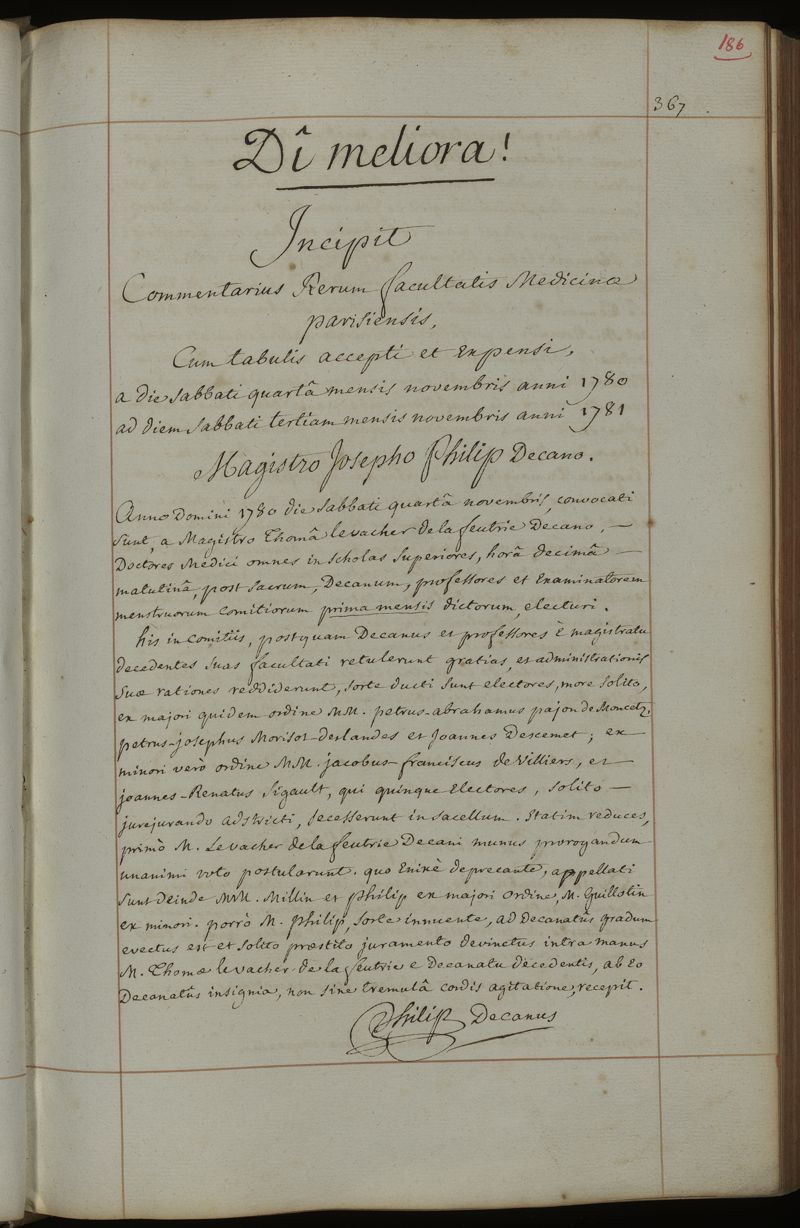 186
367
Dî meliora!
Incipit
Commentarius Rerum facultatis Medicinæ
parisiensis,
Cum tabulis accepti et Expensi,
a die sabbati quartâ mensis novembris anni 1780
ad diem sabbati tertiam mensis novembris anni 1781
Magistro Josepho Philip Decano.
Anno Domini 1780 die sabbati quartâ novembris, convocati
sunt, a Magistro Thomâ levacher de la feutrie Decano, —
Doctores Medici omnes in scholas superiores, horâ decimâ —
matutinâ, post sacrum, Decanum, professores et Examinatorem
menstruorum comitiorum prima mensis dictorum, electuri.
his in comitiis, postquam Decanus et professores è magistratu
decedentes suas facultati retulerunt gratias, et administrationis
suæ rationes reddiderunt, sorte ducti sunt electores, more solito,
ex majori quidem ordine MM. petrus-abrahamus pajon de Moncetz,
petrus-josephus Morisot-Deslandes et Joannes Descemet; ex
minori verò ordine MM. jacobus-franciscus de Villiers, et
joannes-Renatus Sigault, qui quinque Electores, solito —
jurejurando adstricti, secesserunt in sacellum. Statim reduces,
primò M. Levacher de la feutrie Decani munus prorogandum
unanimi voto postularunt. quo Enixè deprecante, appellati
sunt deinde MM. Millin et philip ex majori ordine, M. Guillotin
ex minori. porrò M. philip, sorte innuente, ad Decanatûs gradum
evectus est et solito præstito juramento devinctus intra manus
M. Thomæ levacher de la feutrie e Decanatu decedentis, ab Eo
Decanatûs insignia, non sine tremulâ cordis agitatione, recepit.
Philip Decanus